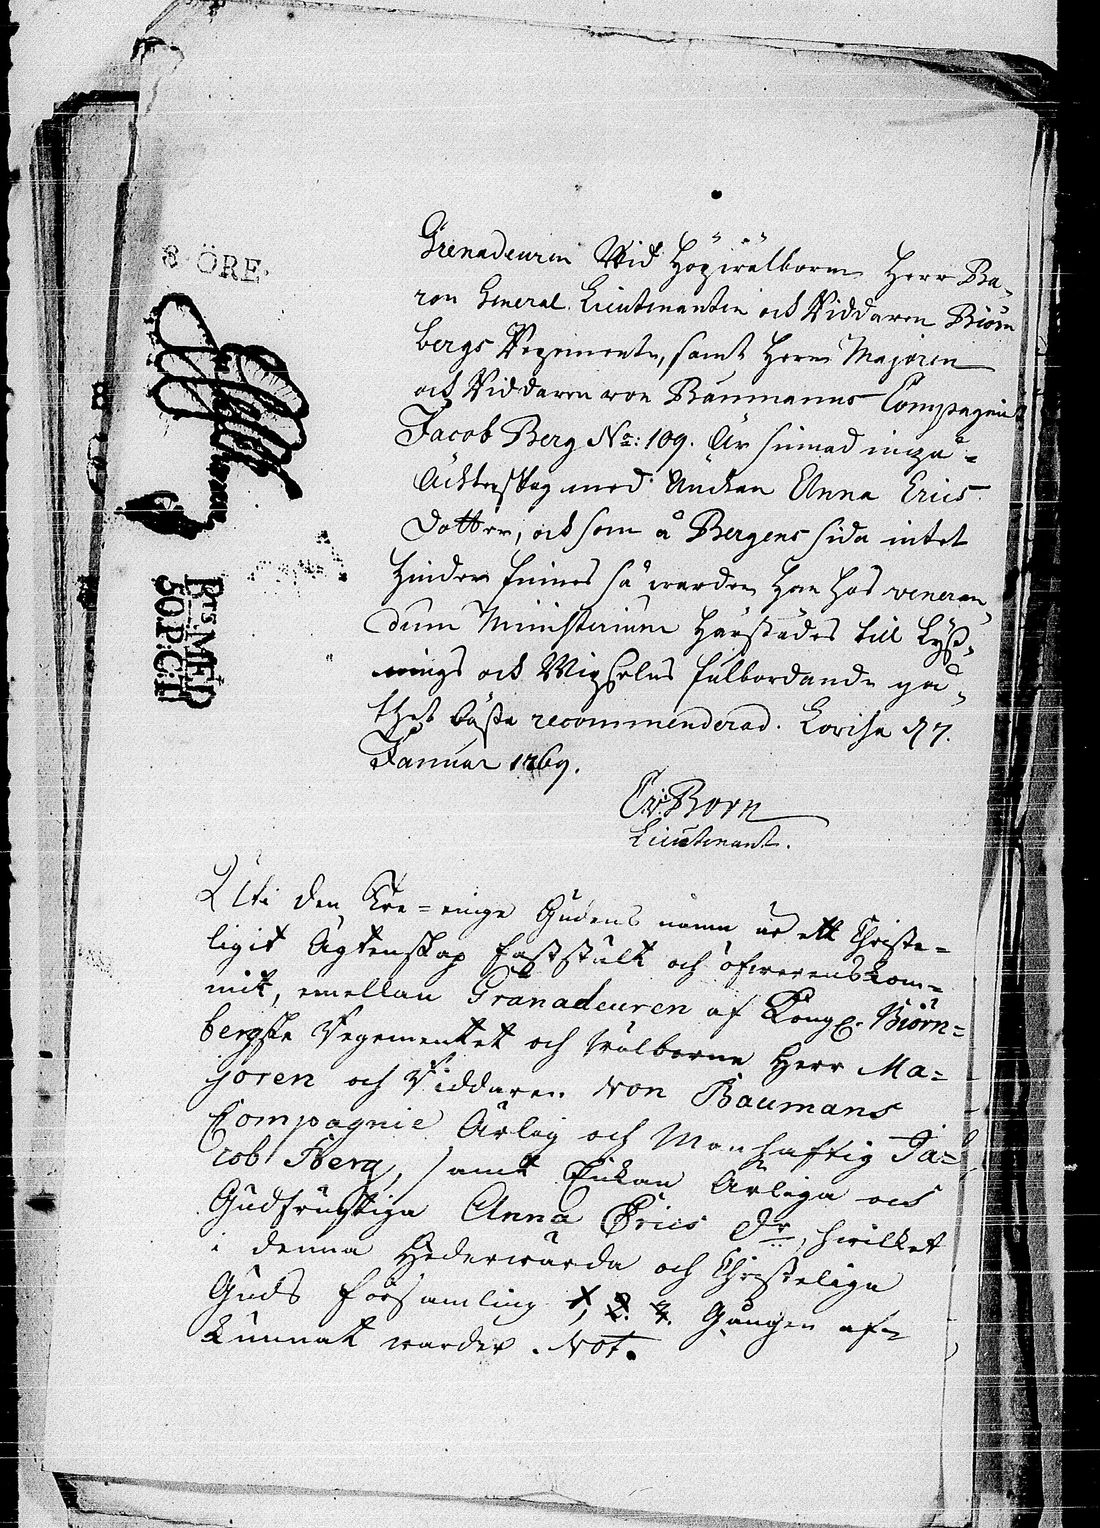 8 ÖRE.
Grenadeuren Wid Högwälborne Herr Ba„
ron General Lieutenanten och Riddaren Biörn
bergs Regemente, samt Herr Majoren
och Riddaren von Baumanns Compagnie
Jacob Berg No: 109. Är sinnad ingå
Äcktenskap med Änckan Anna Erics
Dotter, och som å Bergens sida intet
Hinder finnes så warder han hos veneran„
dum Ministerium härstädes till Lyß„
nings och Wigselns fulbordande på
thet bästa recommenderad. Lovisa d 7.
Januar 1769.
C. v. Born
Lieutenant.
Uti den Tre=enige Gudens namn är ett Christe=
ligit Ägtenskap fastställt och öfwerenskom=
mit, emellan Granadeuren af Kongl. Biörn=
bergska Regementet och Wälborne Herr Ma=
joren och Riddaren von Baumans
Compagnie Ärlig och Manhaftig Ja=
cob Berg, samt Enkan Ärliga och
Gudfrugtiga Anna Erics Dr, hwilket
i denna Hederwärda och Christeliga
Guds Församling 1, 2. 3. Gången af=
kunnat warder. Not.
Brs. MED
50. P: C: T